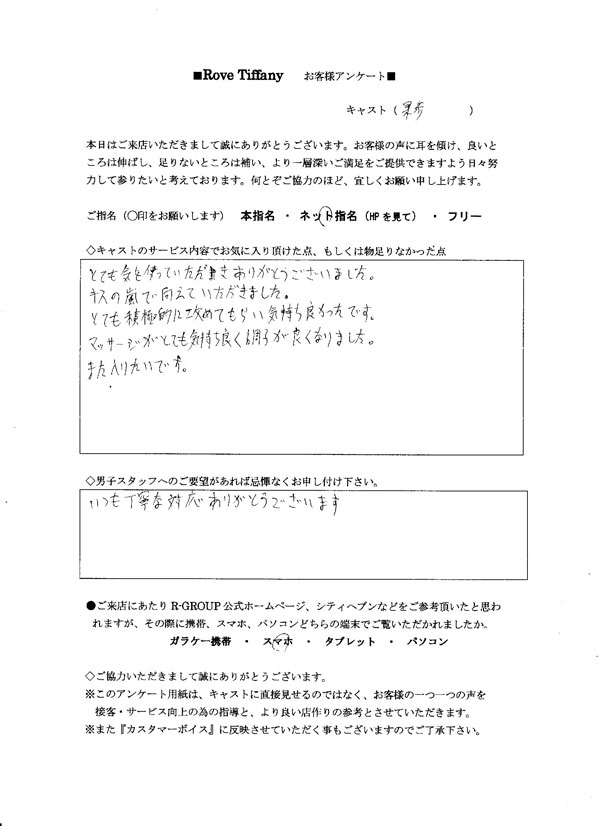 ■Rove Tiffany お客様アンケート■
キャスト（果歩 ）
本日はご来店いただきまして誠にありがとうございます。お客様の声に耳を傾け、良いと
ころは伸ばし、足りないところは補い、より一層深いご満足をご提供できますよう日々努
力して参りたいと考えております。何とぞご協力のほど、宜しくお願い申し上げます。
ご指名（〇印をお願いします） 本指名 ・ ネット指名（HPを見て） ・ フリー
◇キャストのサービス内容でお気に入り頂けた点、もしくは物足りなかった点
とても気を使っていただきありがとうございました。
キスの嵐で向えていただきました。
とても積極的に攻めてもらい気持ち良かったです。
マッサージがとても気持ち良く調子が良くなりました。
また入りたいです。
◇男子スタッフへのご要望があれば忌憚なくお申し付け下さい。
いつも丁寧な対応ありがとうございます
●ご来店にあたり R-GROUP 公式ホームページ、シティヘブンなどをご参考頂いたと思わ
れますが、その際に携帯、スマホ、パソコンどちらの端末でご覧いただかれましたか。
ガラケー携帯 ・ スマホ ・ タブレット ・ パソコン
◇ご協力いただきまして誠にありがとうございます。
※このアンケート用紙は、キャストに直接見せるのではなく、お客様の一つ一つの声を
接客・サービス向上の為の指導と、より良い店作りの参考とさせていただきます。
※また『カスタマーボイス』に反映させていただく事もございますのでご了承下さい。